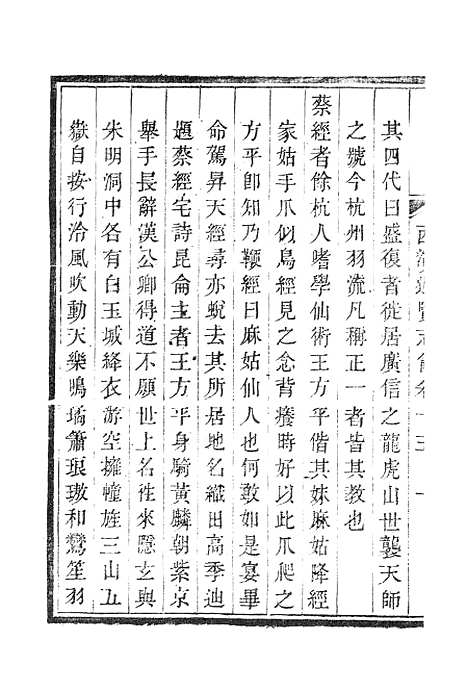 其四代曰盛復者徙居廣信之龍虎山世襲天師
之號今杭州羽流凡稱正一者皆其教也
蔡經者餘杭人嗜學仙術王方平偕其妹麻姑降經
家姑手爪似鳥經見之念背癢時好以此爪爬之
方平卽知乃鞭經曰麻姑仙人也何敢如是宴畢
命駕昇天經尋亦蛻去其所居地名織田高季迪
題蔡經宅詩昆侖主者王方平身騎黃麟朝紫京
舉手長辭漢公卿得道不願世上名徃來隱玄與
朱明洞中各有白玉城絳衣游空擁幢旌三山五
嶽自按行泠風吹動天樂鳴璚簫琅璈和鸞笙羽